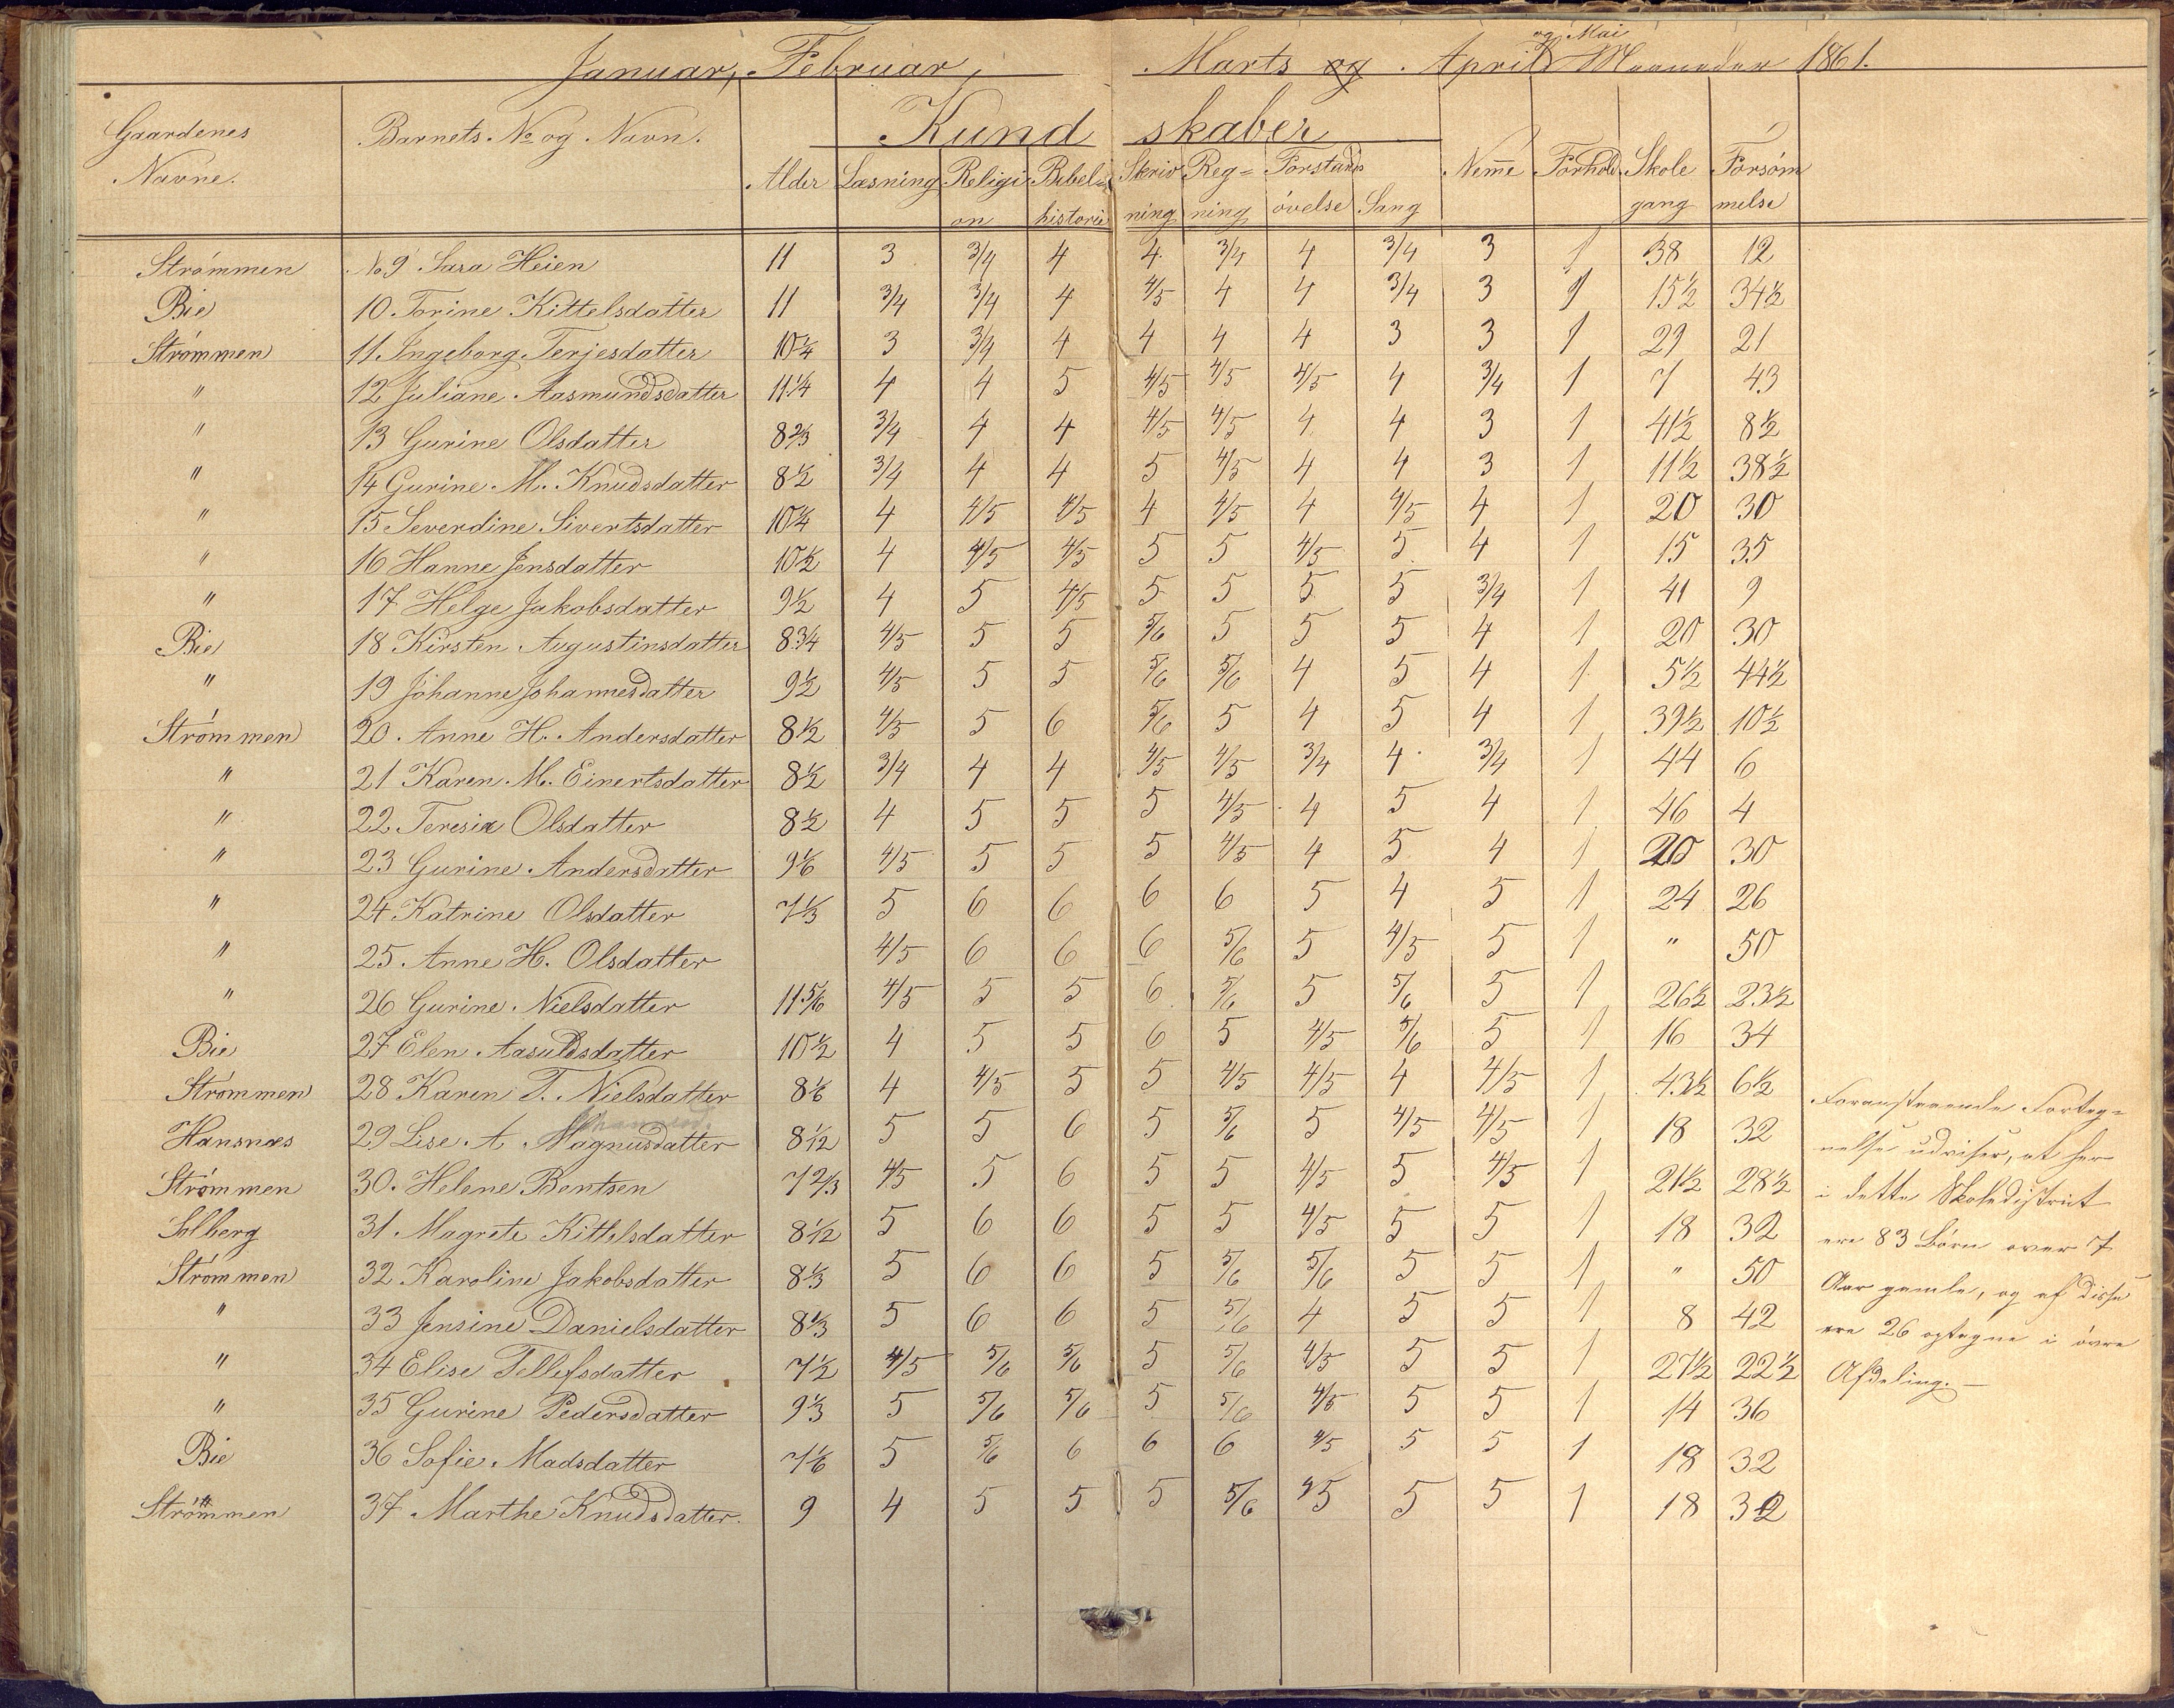 Januar, Februar, Marts og April og Mai Maaneder 1861.
Gaardenes Navne. Barnets No og Navn. Alder Kundskaber Læsning Religion Bibelhistorie Skrivning Reg=ning Forstands øvelse Sang Nem̅e Forhold Skole gang Forsømmelse
Strømmen No 9 Sara Heien 11 3 3/4 4 4 3/4 4 3/4 3 1 38 12
Bie 10. Torine Kittelsdatter 11 3/4 3/4 4 4/5 4 4 3/4 3 1 15½ 34½
Strømmen 11. Ingeborg Terjesdatter 10¼ 3 3/4 4 4 4 4 3 3 1 29 21
" 12 Juliane Aasmundsdatter 11¼ 4 4 5 4/5 4/5 4/5 4 3/4 1 7 43
" 13 Gurine Olsdatter 8⅔ 3/4 4 4 4/5 4/5 4 4 3 1 41½ 8½
" 14 Gurine M. Knudsdatter 8½ 3/4 4 4 5 4/5 4 4 3 1 11½ 38½
" 15 Severdine Sivertsdatter 10¼ 4 4/5 4/5 4 4/5 4 4/5 4 1 20 30
" 16 Hanne Jensdatter 10½ 4 4/5 4/5 5 5 4/5 5 4 1 15 35
" 17 Helge Jakobsdatter 9½ 4 5 4/5 5 5 5 5 3/4 1 41 9
Bie 18 Kirsten Augustinsdatter 8¾ 4/5 5 5 5/6 5 5 5 4 1 20 30
" 19 Johanne Johannesdatter 9½ 4/5 5 5 5/6 5/6 4 5 4 1 5½ 44½
Strømmen 20. Anne H. Andersdatter 8½ 4/5 5 6 5/6 5 4 5 4 1 39½ 10½
" 21 Karen M. Einertsdatter 8½ 3/4 4 4 4/5 4/5 3/4 4 3/4 1 44 6
" 22. Teresia Olsdatter 8½ 4 5 5 5 4/5 4 5 4 1 46 4
" 23 Gurine Andersdatter 9⅙ 4/5 5 5 5 4/5 4 5 4 1 20 30
" 24. Katrine Olsdatter 7⅓ 5 6 6 6 6 5 4 5 1 24 26
" 25. Anne H. Olsdatter 4/5 6 6 6 5/6 5 4/5 5 1 " 50
" 26 Gurine Nielsdatter 11⅚ 4/5 5 5 6 5/6 5 5/6 5 1 26½ 23½
Bie 27 Elen Aasuldsdatter 10½ 4 5 5 6 5 4/5 5/6 5 1 16 34
Strømmen 28 Karen T. Nielsdatter 8⅙ 4 4/5 5 5 4/5 4/5 4 4/5 1 43½ 6½
Hansnæs 29 Lise A Magnusdatter 8 1/12 5 5 6 5 5/6 5 4/5 4/5 1 18 32
Strømmen 30. Helene Bentsen 7⅔ 4/5 5 6 5 5 4/5 5 4/5 1 21½ 28½
Solberg 31. Magrete Kittelsdatter 8 1/12 5 6 6 5 5 4/5 5 5 1 18 32
Strømmen 32 Karoline Jakobsdatter 8⅓ 5 6 6 5 5/6 5/6 5 5 1 " 50
" 33 Jensine Danielsdatter 8⅓ 5 6 6 5 5/6 4 5 5 1 8 42
" 34 Elise Tellefsdatter 7½ 4/5 5/6 5/6 5 5/6 4/5 5 5 1 27½ 22½
" 35 Gurine Pedersdatter 9⅓ 5 5/6 5/6 5 5/6 4/5 5 5 1 14 36
Bie 36 Sofie Madsdatter 7⅙ 5 5/6 6 6 6 4/5 5 5 1 18 32
Strømmen 37 Marthe Knudsdatter. 9 4 5 5 5 5/6 4/5 5 5 1 18 32
Foranstaaende Forteg=
nelse udviser, at her
i dette Skoledistrict
ere 83 Børn over 7
Aar gamle, og af disse
ere 26 optagne i øvre
Afdeling.—